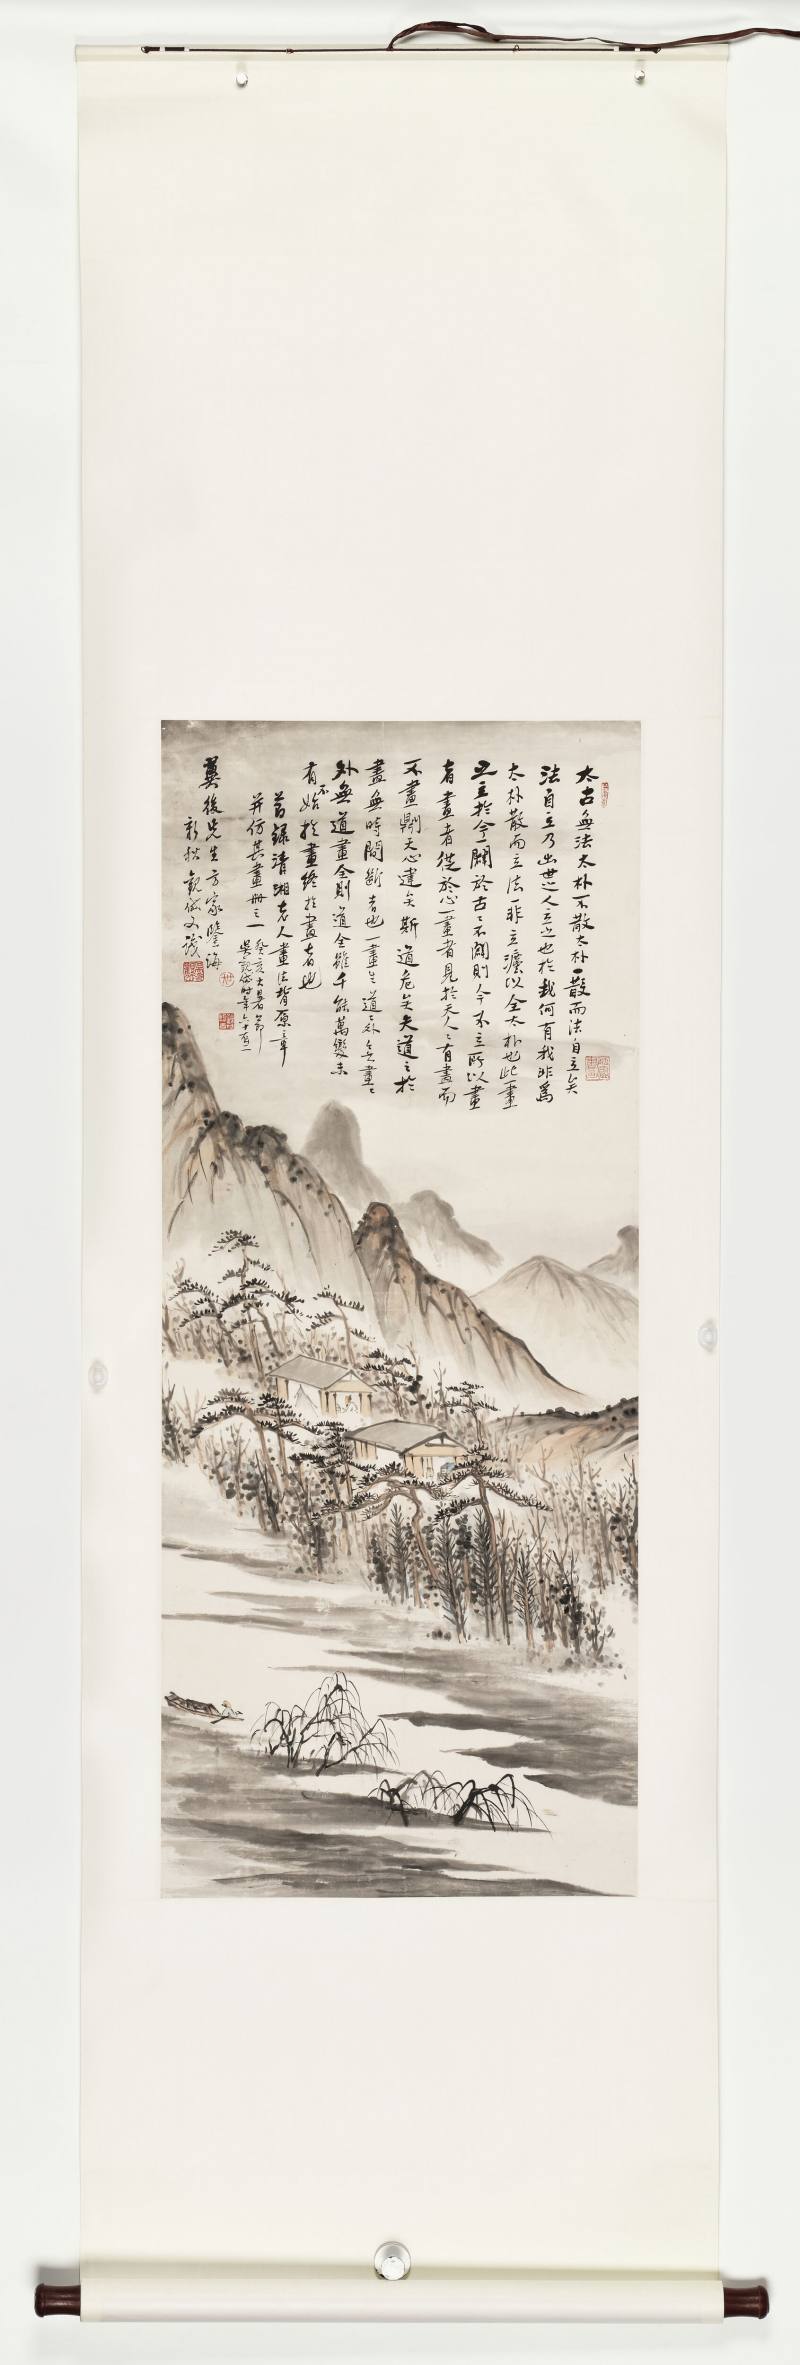 太古無法太朴不散太朴一散而法自立矣
法自立乃出世之人立之也於我何有我非爲
太朴散而立法一非立濂以全太朴也此一畫
立於今闢於古古不闢則今不立所以畫
者畫者從於心一畫者見於天人人有畫而
不畫則天心違矣斯道危矣夫道之於
畫無時間斷者也一畫生道道外無畫畫
外無道畫全則道全雖千能萬變未
有不始於畫終於畫者也
節錄清湘老人畫法背原章
并仿其畫冊之一
癸亥大暑節
吳觀岱時年六十有一
翼後先生方家鑒海
新秋觀岱又識